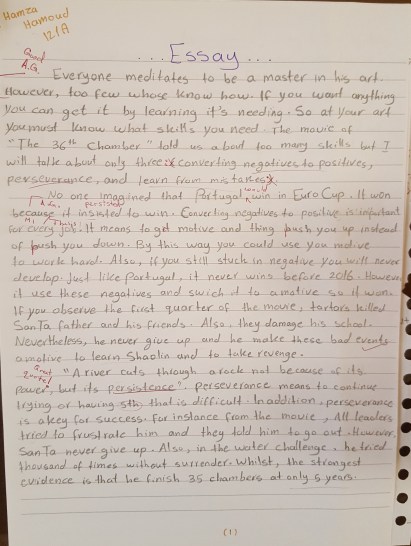 Hamza
Hamoud
12/A
... Essay ...
Good
A.G.
Everyone meditates to be a master in his art.
However, too few whose know how. If you want anything
you can get it by learning it's needing. So at your art
you must know what skills you need. The movie of
"The 36th Chamber" told us about too many skills but I
will talk about only three converting negatives to positives,
perseverance, and learn from mistakes.
No one imagined that Portugal would win in Euro Cup. It won
because it insisted to win. Converting negatives to positive is important
for every job. It means to get motive and thing push you up instead
of push you down. By this way you could use you motive
to work hard. Also, if you still stuck in negative you will never
develop. Just like Portugal, it never wins before 2016. However
it use these negatives and swich it to a motive so it won.
If you observe the first quarter of the movie, tartars killed
San Ta father and his friends. Also, they damage his school.
Nevertheless, he never give up and he make these bad events
a motive to learn Shaolin and to take revenge.
Great
"A river cuts through a rock not because of its
power, but its persistence". perseverance means to continue
trying or having sth that is difficult. In addition, perseverance
is a key for success. for instance from the movie, All leaders
tried to frustrate him and they told him to go out. However,
San Ta never give up. Also, in the water challenge, he tried
thousand of times without surrender. Whilst, the strongest
evidence is that he finish 35 chambers at only 5 years.
(1)